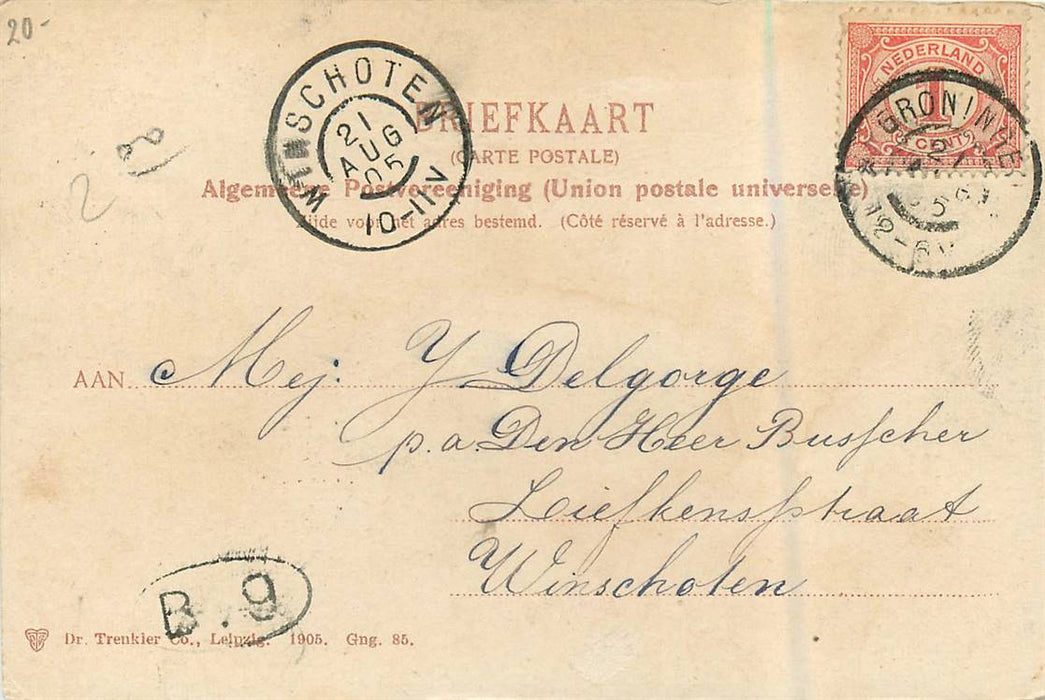 20-
NEDERLAND
1
CENT
WINSCHOTEN
21
AUG
05
10-11V
GRONINGEN
21
5
12-6V
BRIEFKAART
(CARTE POSTALE)
Algemeene Postvereeniging (Union postale universelle)
Zijde voor het adres bestemd. (Côté réservé à l'adresse.)
2
AAN Mej: Y Delgorge
p.a. Den Heer Busscher
Liefkensstraat
Winschoten
B.9
Dr. Trenkler Co., Leipzig. 1905. Gng. 85.